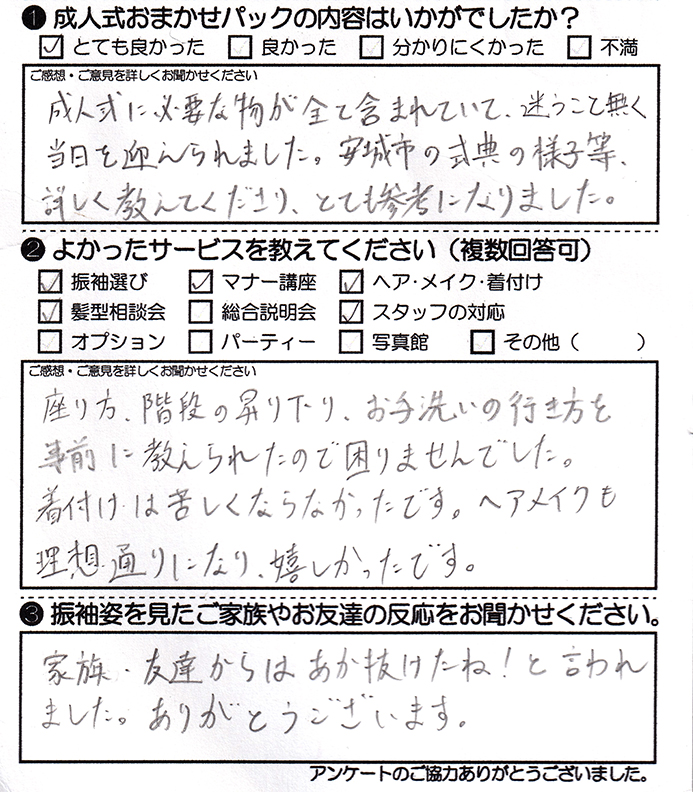 ❶ 成人式おまかせパックの内容はいかがでしたか？
☑ とても良かった □ 良かった □ 分かりにくかった □ 不満
ご感想・ご意見を詳しくお聞かせください
成人式に必要な物が全て含まれていて、迷うこと無く
当日を迎えられました。安城市の式典の様子等、
詳しく教えてくださり、とても参考になりました。
❷ よかったサービスを教えてください（複数回答可）
☑ 振袖選び ☑ マナー講座 ☑ ヘア・メイク・着付け
☑ 髪型相談会 □ 総合説明会 ☑ スタッフの対応
□ オプション □ パーティー □ 写真館 □ その他（ ）
ご感想・ご意見を詳しくお聞かせください
座り方、階段の昇り下り、お手洗いの行き方を
事前に教えられたので困りませんでした。
着付けは苦しくならなかったです。ヘアメイクも
理想通りになり、嬉しかったです。
❸ 振袖姿を見たご家族やお友達の反応をお聞かせください。
家族・友達からはあか抜けたね！と言われ
ました。ありがとうございます。
アンケートのご協力ありがとうございました。